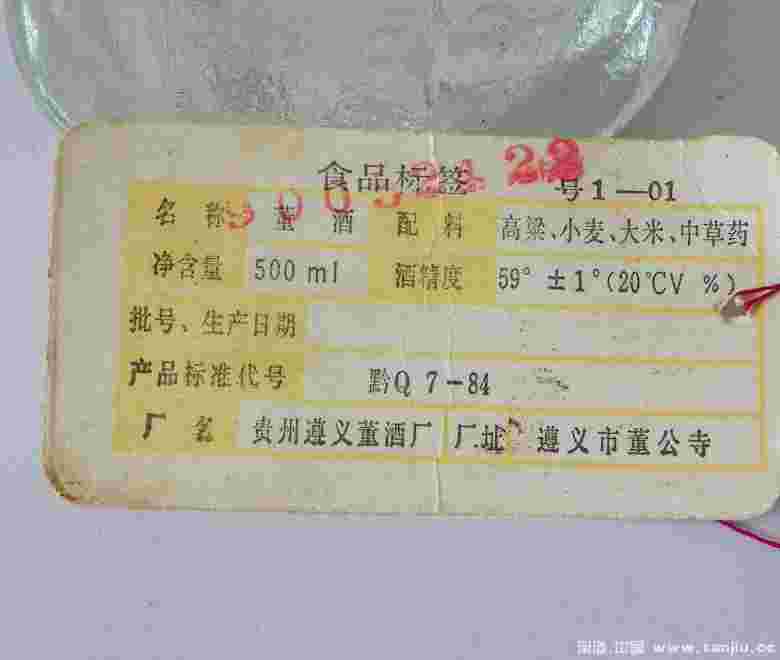 食品标签 号1—01
名称 董酒 配料 高粱、小麦、大米、中草药
净含量 500 ml 酒精度 59° ±1°(20℃V %)
批号、生产日期
产品标准代号 黔Q 7-84
厂名 贵州遵义董酒厂 厂址 遵义市董公寺
www.tanjiu.cc